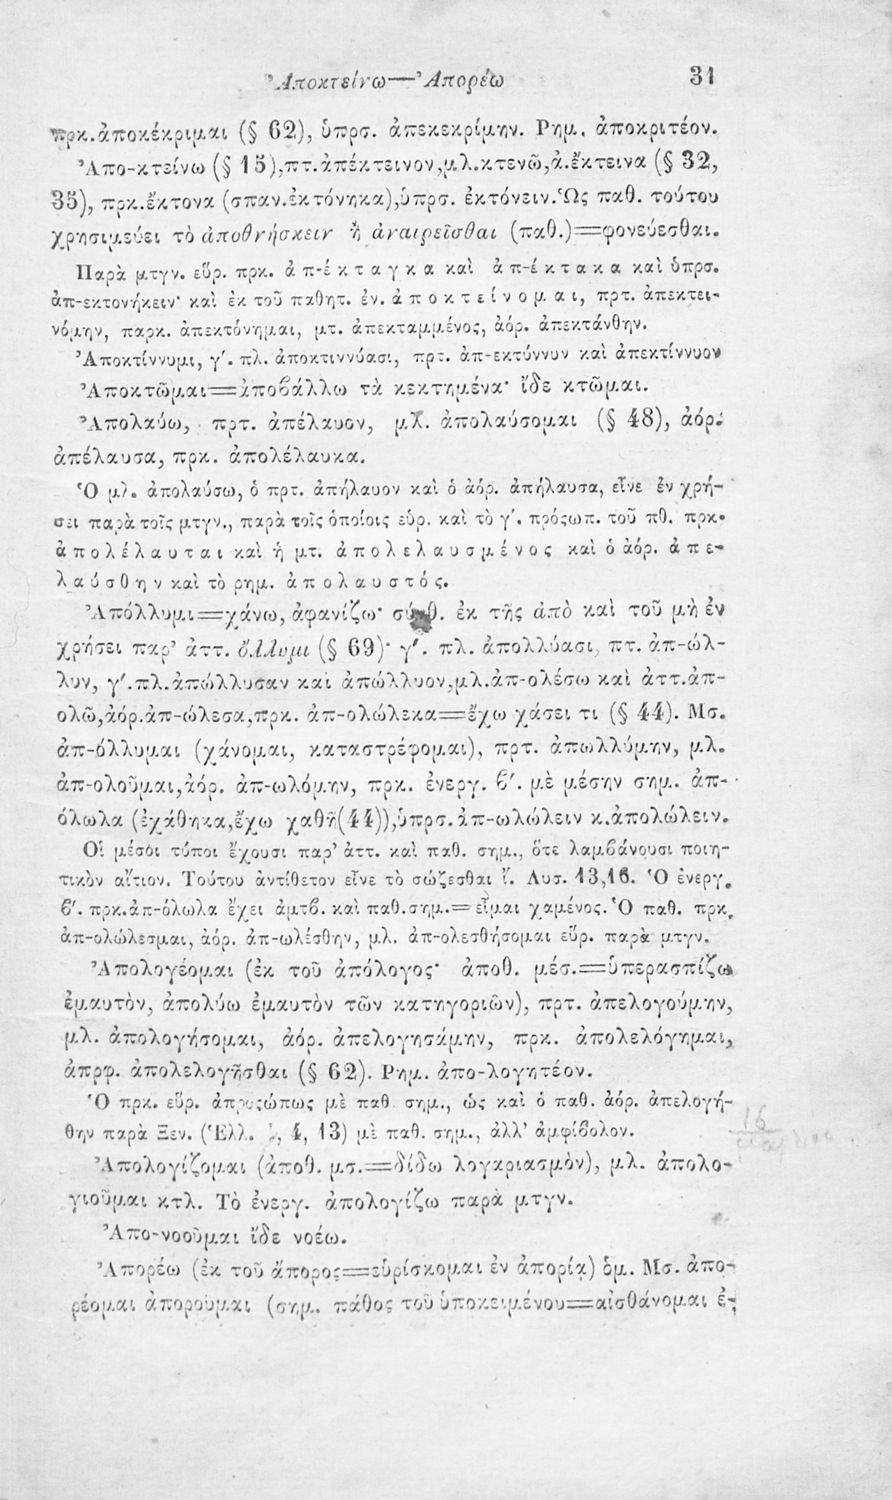 Ἀποκτείνω—Ἀπορέω 31
πρκ.ἀποκέκριμαι (§ 62), ὑπρσ. ἀπεκεκρίμην. Ρημ. ἀποκριτέον.
Ἀπο-κτείνω (§ 15),πτ.ἀπέκτεινον,μ.λ.κτενῶ,ἀ.ἔκτεινα (§ 32,
35), πρκ.ἔκτονα (σπαν.ἐκτόνηκα),ὑπρσ. ἐκτόνειν.Ὡς παθ. τούτου
χρησιμεύει τὸ ἀποθνήσκειν ἢ ἀναιρεῖσθαι (παθ.)=φονεύεσθαι.
Παρὰ μτγν. εὕρ. πρκ. ἀπ-έκταγκα καὶ ἀπ-έκτακα καὶ ὑπρσ.
ἀπ-εκτονήκειν· καὶ ἐκ τοῦ παθητ. ἐν. ἀποκτείνομαι, πρτ. ἀπεκτει-
νόμην, παρκ. ἀπεκτόνημαι, μτ. ἀπεκταμμένος, ἀόρ. ἀπεκτάνθην.
Ἀποκτίννυμι, γ΄. πλ. ἀποκτιννύασι, πρτ. ἀπ-εκτύννυν καὶ ἀπεκτίννυον
Ἀποκτῶμαι=ἀποβάλλω τὰ κεκτημένα· ἴδε κτῶμαι.
Ἀπολαύω, πρτ. ἀπέλαυον, μλ. ἀπολαύσομαι (§ 48), ἀόρ.
ἀπέλαυσα, πρκ. ἀπολέλαυκα.
Ὁ μλ. ἀπολαύσω, ὁ πρτ. ἀπήλαυον καὶ ὁ ἀόρ. ἀπήλαυσα, εἶνε ἐν χρή-
σει παρὰ τοῖς μτγν., παρὰ τοῖς ὁποίοις εὑρ. καὶ τὸ γ΄. πρόσωπ. τοῦ πθ. πρκ.
ἀπολέλαυται καὶ ἡ μτ. ἀπολελαυσμένος καὶ ὁ ἀόρ. ἀπε-
λαύσθην καὶ τὸ ρημ. ἀπολαυστός.
Ἀπόλλυμι=χάνω, ἀφανίζω· σύνθ. ἐκ τῆς ἀπὸ καὶ τοῦ μὴ ἐν
χρήσει παρ' ἀττ. ὄλλυμι (§ 69)· γ΄. πλ. ἀπολλύασι, πτ. ἀπ-ώλ-
λυν, γ΄.πλ.ἀπώλλυσαν καὶ ἀπώλλυον,μλ.ἀπ-ολέσω καὶ ἀττ.ἀπ-
ολῶ,ἀόρ.ἀπ-ώλεσα,πρκ. ἀπ-ολώλεκα=ἔχω χάσει τι (§ 44). Μσ.
ἀπ-όλλυμαι (χάνομαι, καταστρέφομαι), πρτ. ἀπωλλύμην, μλ.
ἀπ-ολοῦμαι,ἀόρ. ἀπ-ωλόμην, πρκ. ἐνεργ. β΄. μὲ μέσην σημ. ἀπ-
όλωλα (ἐχάθηκα,ἔχω χαθῆ(44)),ὑπρσ.ἀπ-ωλώλειν κ.ἀπολώλειν.
Οἱ μέσοι τύποι ἔχουσι παρ' ἀττ. καὶ παθ. σημ., ὅτε λαμβάνουσι ποιη-
τικὸν αἴτιον. Τούτου ἀντίθετον εἶνε τὸ σώζεσθαι ἴ. Λυσ. 13,16. Ὁ ἐνεργ.
β΄. πρκ.ἀπ-όλωλα ἔχει ἀμτβ. καὶ παθ.σημ.=εἶμαι χαμένος.Ὁ παθ. πρκ.
ἀπ-ολώλεσμαι, ἀόρ. ἀπ-ωλέσθην, μλ. ἀπ-ολεσθήσομαι εὕρ. παρὰ μτγν.
Ἀπολογέομαι (ἐκ τοῦ ἀπόλογος· ἀποθ. μέσ.=ὑπερασπίζω
ἐμαυτὸν, ἀπολύω ἐμαυτὸν τῶν κατηγοριῶν), πρτ. ἀπελογούμην,
μλ. ἀπολογήσομαι, ἀόρ. ἀπελογησάμην, πρκ. ἀπολελόγημαι,
ἀπρφ. ἀπολελογῆσθαι (§ 62). Ρημ. ἀπο-λογητέον.
Ὁ πρκ. εὕρ. ἀπροσώπως μὲ παθ. σημ., ὡς καὶ ὁ παθ. ἀόρ. ἀπελογή-
θην παρὰ Ξεν. (Ἑλλ. , 4, 13) μὲ παθ. σημ., ἀλλ' ἀμφίβολον.
Ἀπολογίζομαι (ἀποθ. μσ.=δίδω λογαριασμὸν), μλ. ἀπολο-
γιοῦμαι κτλ. Τὸ ἐνεργ. ἀπολογίζω παρὰ μτγν.
Ἀπο-νοοῦμαι ἴδε νοέω.
Ἀπορέω (ἐκ τοῦ ἄπορος=εὑρίσκομαι ἐν ἀπορίᾳ) ὁμ. Μσ. ἀπο-
ρέομαι ἀποροῦμαι (σημ. πάθος τοῦ ὑποκειμένου=αἰσθάνομαι ἐ-
16